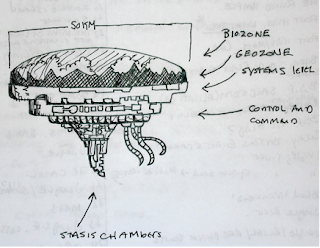 50KM
BIOZONE
GEOZONE
SYSTEMS LEVEL
CONTROL AND
COMMAND
STASIS CHAMBERS